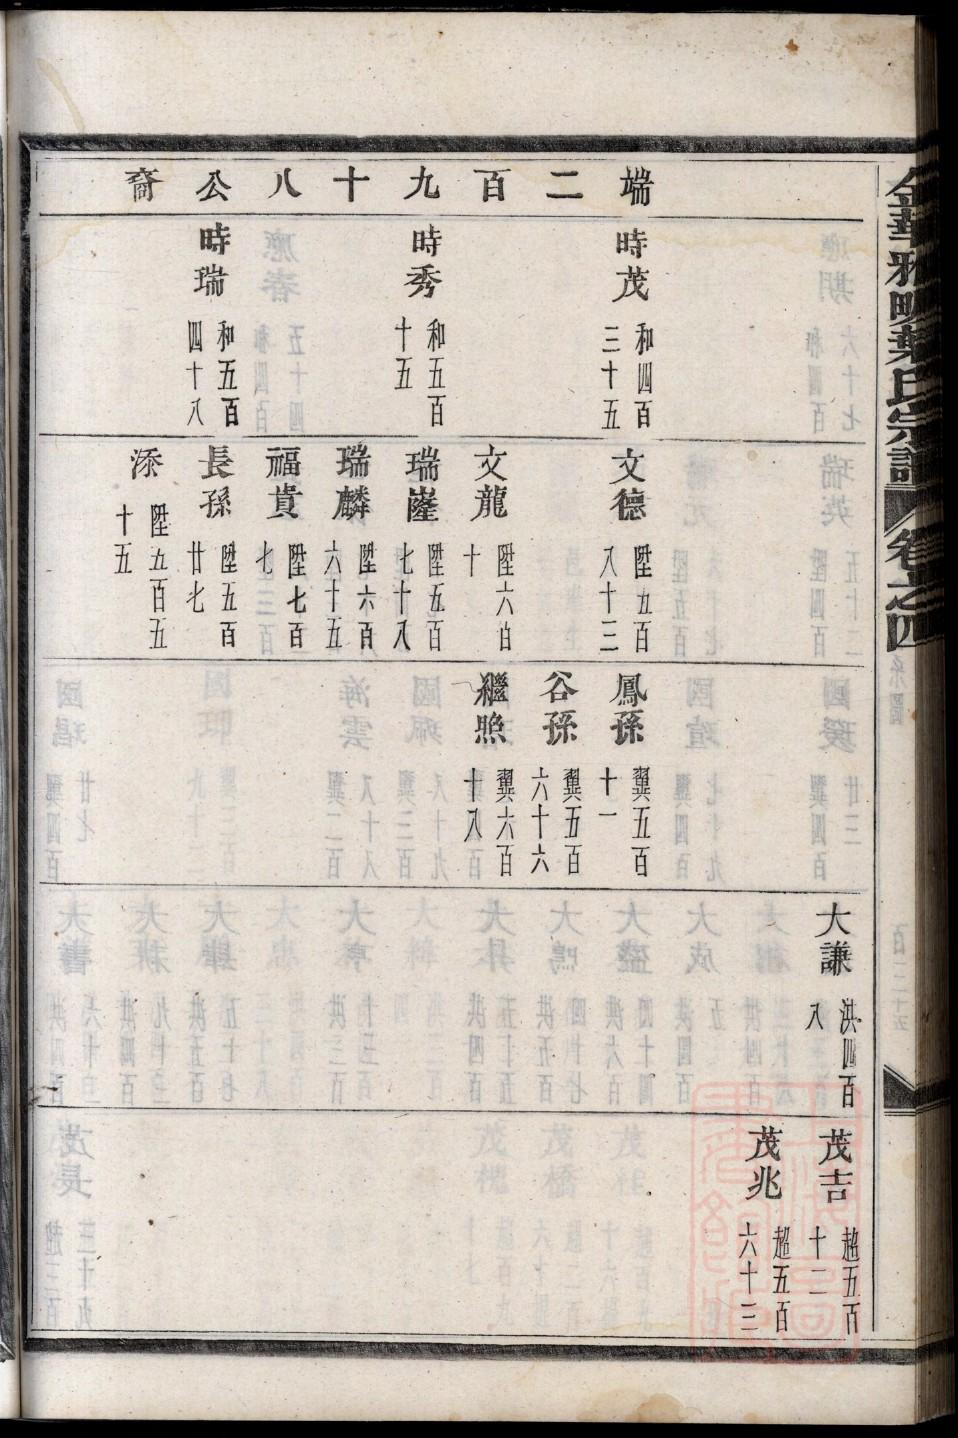 金華雅畈葉氏宗譜 卷之四
端二百九十八公裔
時茂 和四百三十五
時秀 和五百十五
時瑞 和五百四十八
文德 陞五百八十三
文龍 陞六百十
瑞㟨 陞五百七十八
瑞麟 陞六百六十五
福貴 陞七百七
長孫 陞五百廿七
添 陞五百五十五
鳳孫 翼五百十一
谷孫 翼五百六十六
繼照 翼六百十八
大謙 洪四百八
茂吉 趙五百十二
茂兆 趙五百六十三